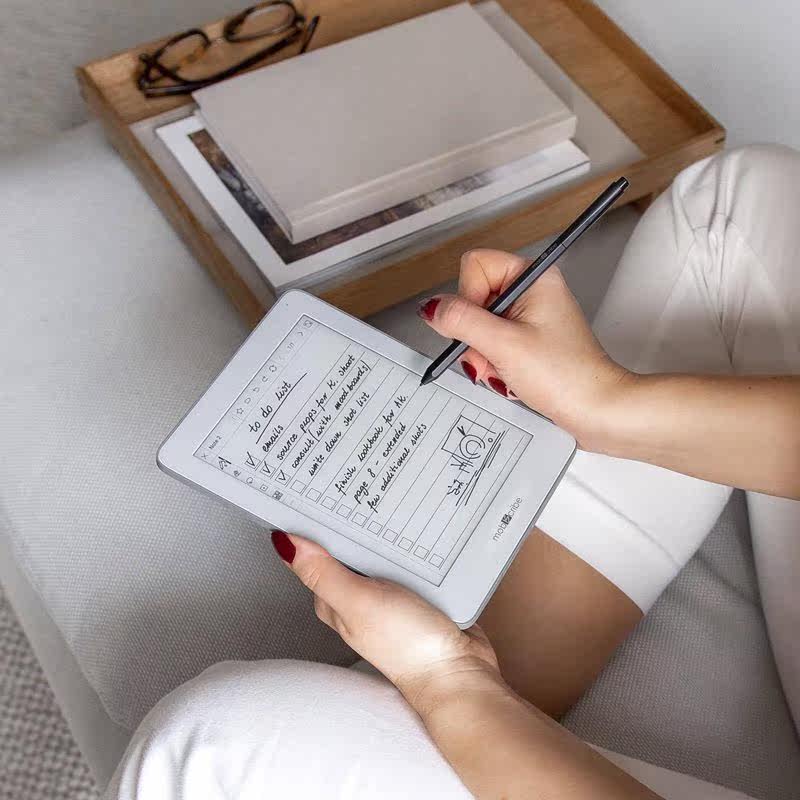 Note 2
1/1
to do list
emails
source props for K. shoot
consult with moodboards
write down shot list
finish lookbook for AK.
page 8 - extended
few additional shots
mobiscribe